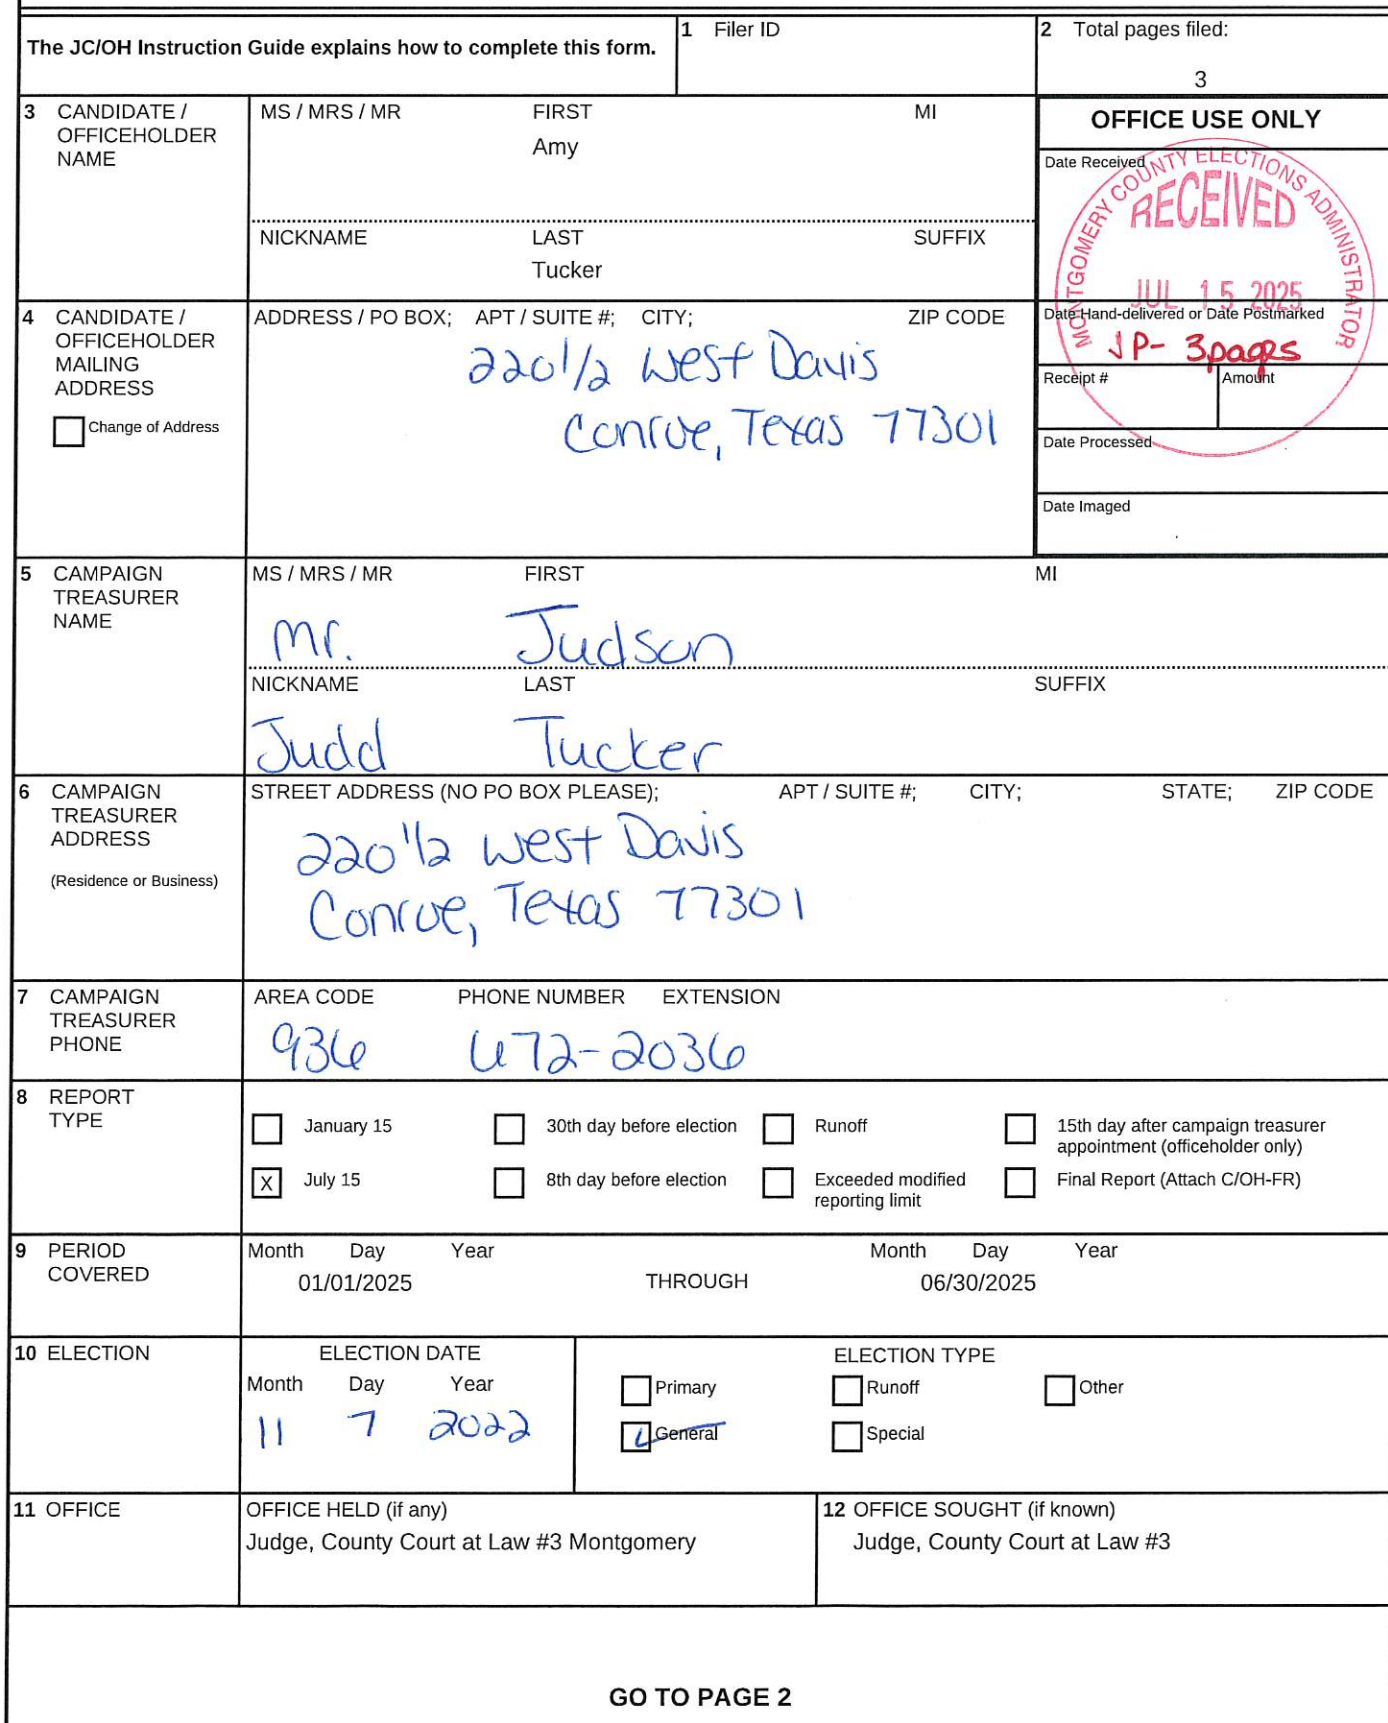 The JC/OH Instruction Guide explains how to complete this form.
1 Filer ID
2 Total pages filed:
3
3 CANDIDATE / OFFICEHOLDER NAME
MS / MRS / MR FIRST MI
Amy
NICKNAME LAST SUFFIX
Tucker
OFFICE USE ONLY
Date Received
MONTGOMERY COUNTY ELECTIONS ADMINISTRATOR
RECEIVED
JUL 15 2025
Date Hand-delivered or Date Postmarked
JP- 3pages
Receipt # Amount
Date Processed
Date Imaged
4 CANDIDATE / OFFICEHOLDER MAILING ADDRESS
Change of Address
ADDRESS / PO BOX; APT / SUITE #; CITY; ZIP CODE
220 1/2 West Davis
Conroe, Texas 77301
5 CAMPAIGN TREASURER NAME
MS / MRS / MR FIRST MI
Mr. Judson
NICKNAME LAST SUFFIX
Judd Tucker
6 CAMPAIGN TREASURER ADDRESS
(Residence or Business)
STREET ADDRESS (NO PO BOX PLEASE); APT / SUITE #; CITY; STATE; ZIP CODE
220 1/2 West Davis
Conroe, Texas 77301
7 CAMPAIGN TREASURER PHONE
AREA CODE PHONE NUMBER EXTENSION
936 672-2036
8 REPORT TYPE
January 15 30th day before election Runoff 15th day after campaign treasurer appointment (officeholder only)
X July 15 8th day before election Exceeded modified reporting limit Final Report (Attach C/OH-FR)
9 PERIOD COVERED
Month Day Year Month Day Year
01/01/2025 THROUGH 06/30/2025
10 ELECTION
ELECTION DATE
Month Day Year
11 7 2022
ELECTION TYPE
Primary Runoff Other
General Special
11 OFFICE
OFFICE HELD (if any)
Judge, County Court at Law #3 Montgomery
12 OFFICE SOUGHT (if known)
Judge, County Court at Law #3
GO TO PAGE 2